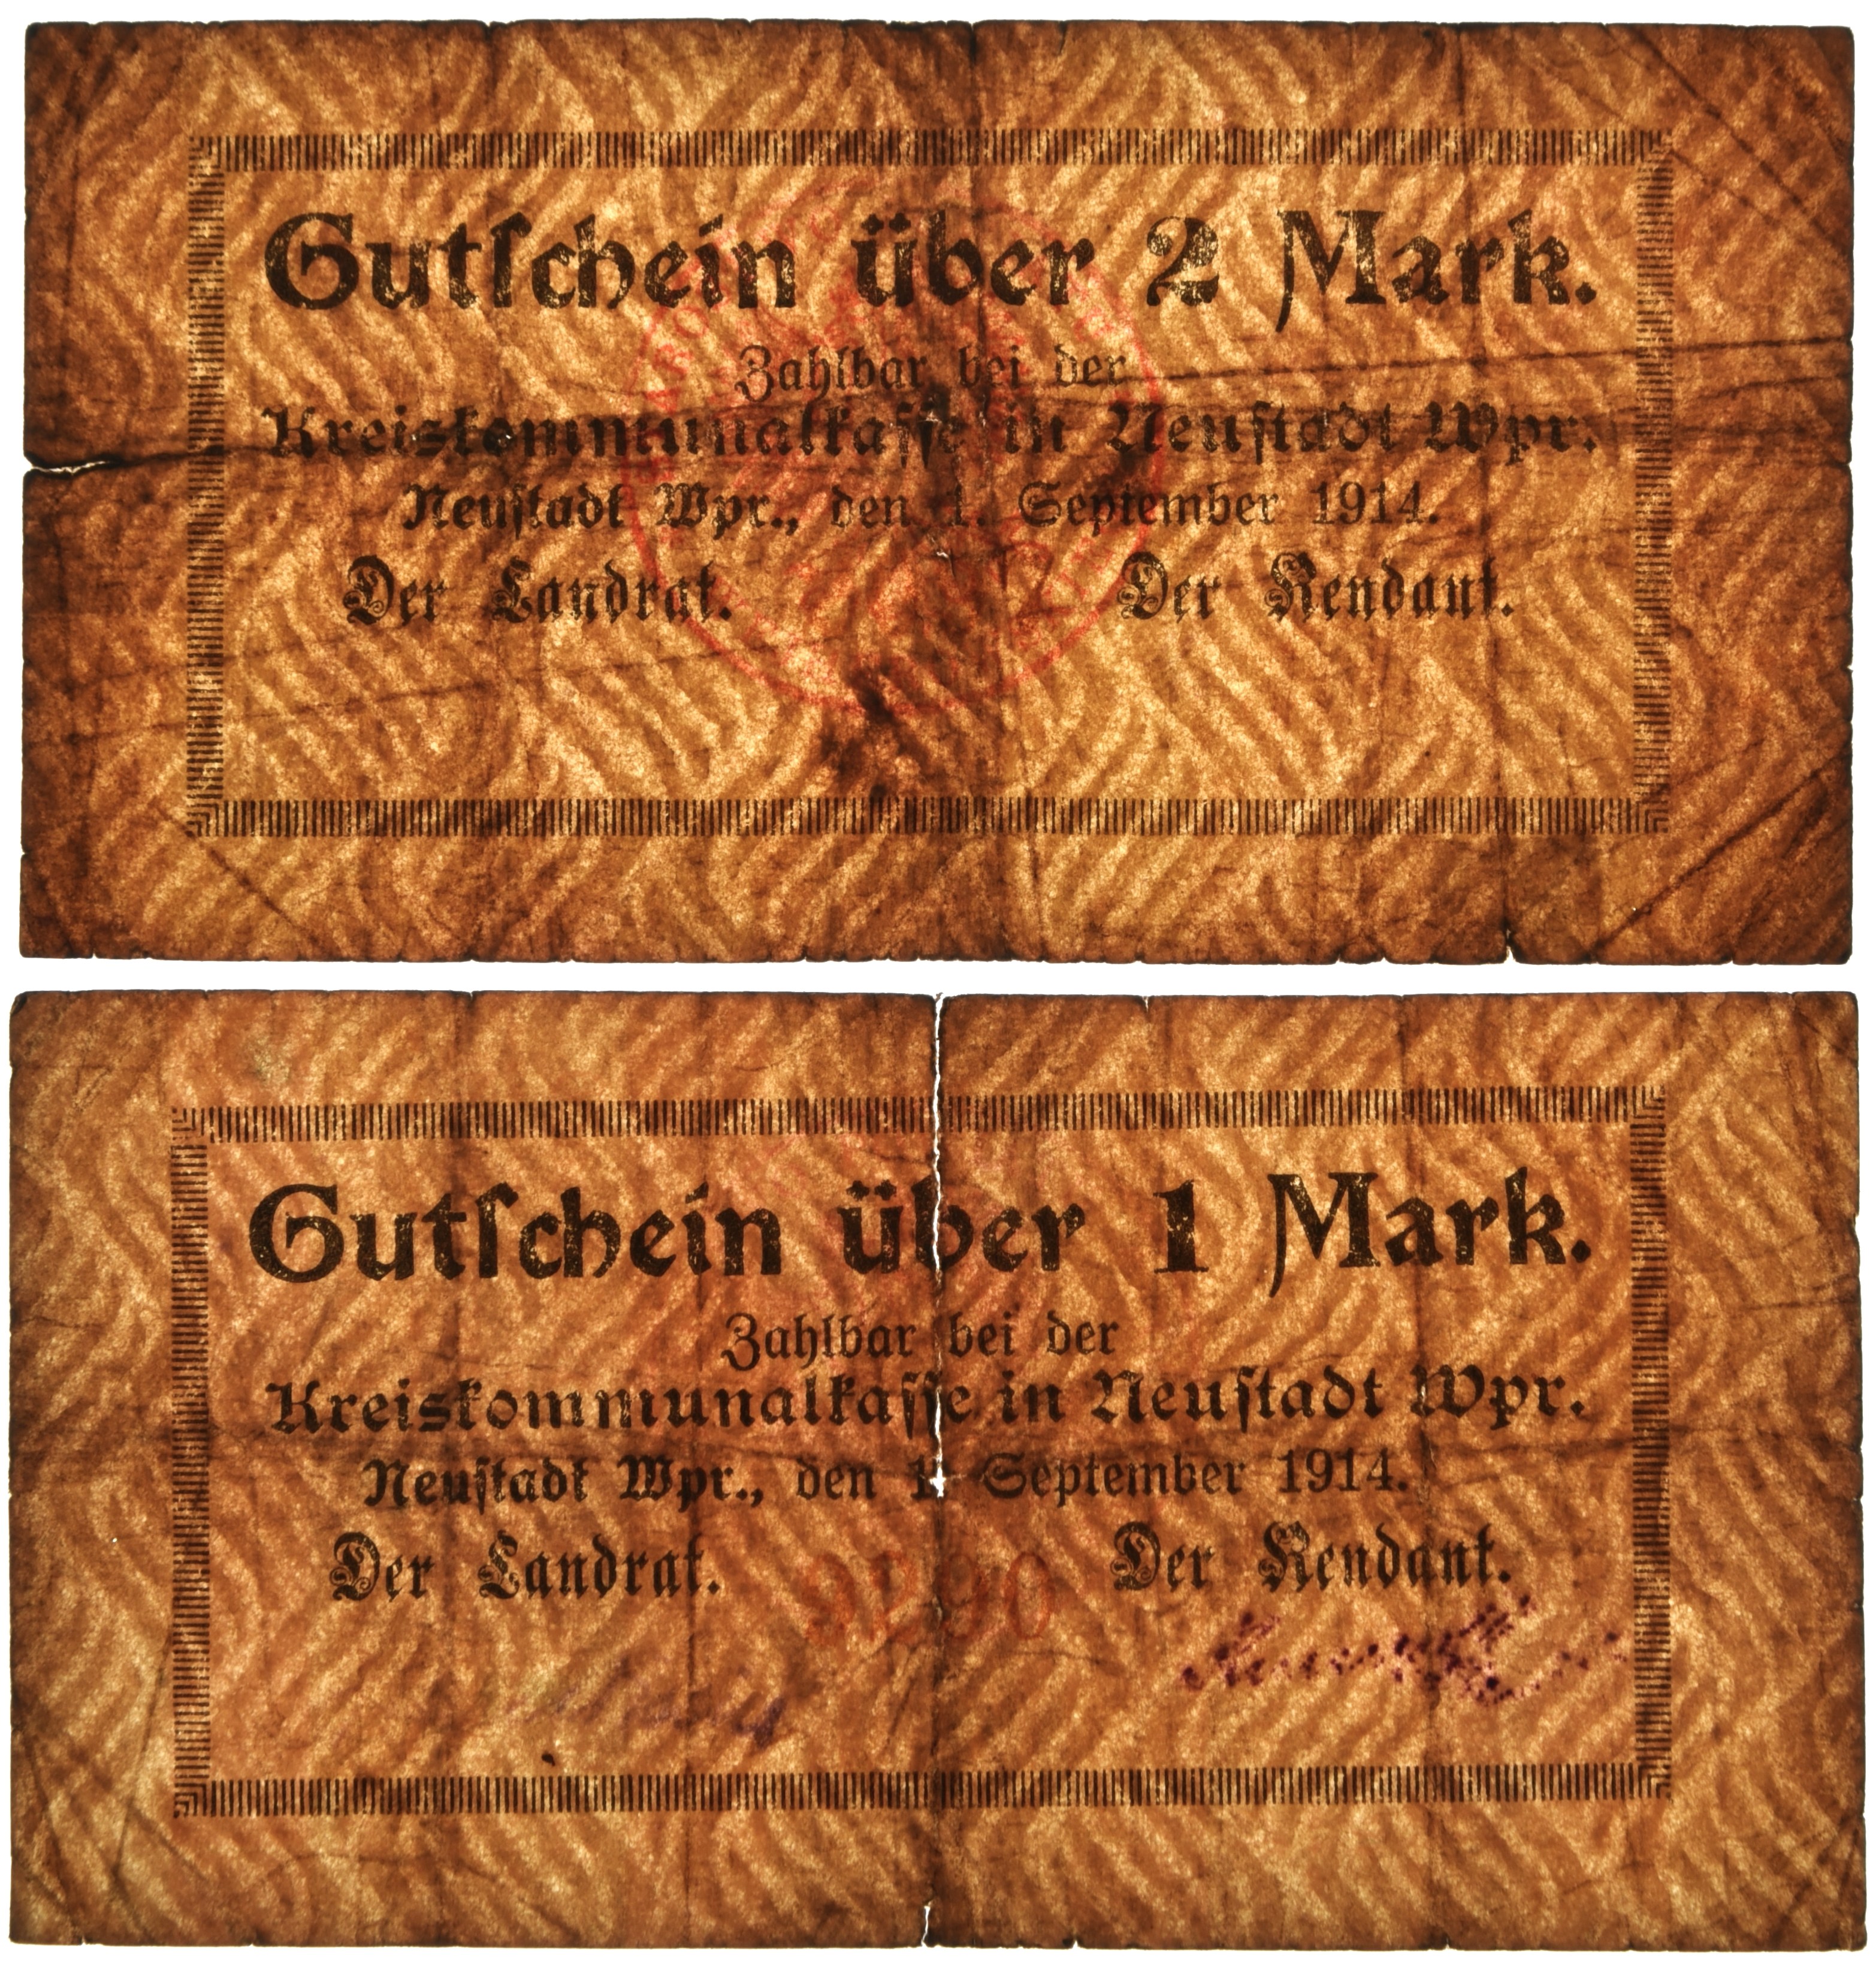 Gutſchein über 2 Mark.
Zahlbar bei der
Kreiskommunalkaſſe in Neuſtadt Wpr.
Neuſtadt Wpr., den 1. September 1914.
Der Landrat. Der Rendant.
Gutſchein über 1 Mark.
Zahlbar bei der
Kreiskommunalkaſſe in Neuſtadt Wpr.
Neuſtadt Wpr., den 1. September 1914.
Der Landrat. Der Rendant.